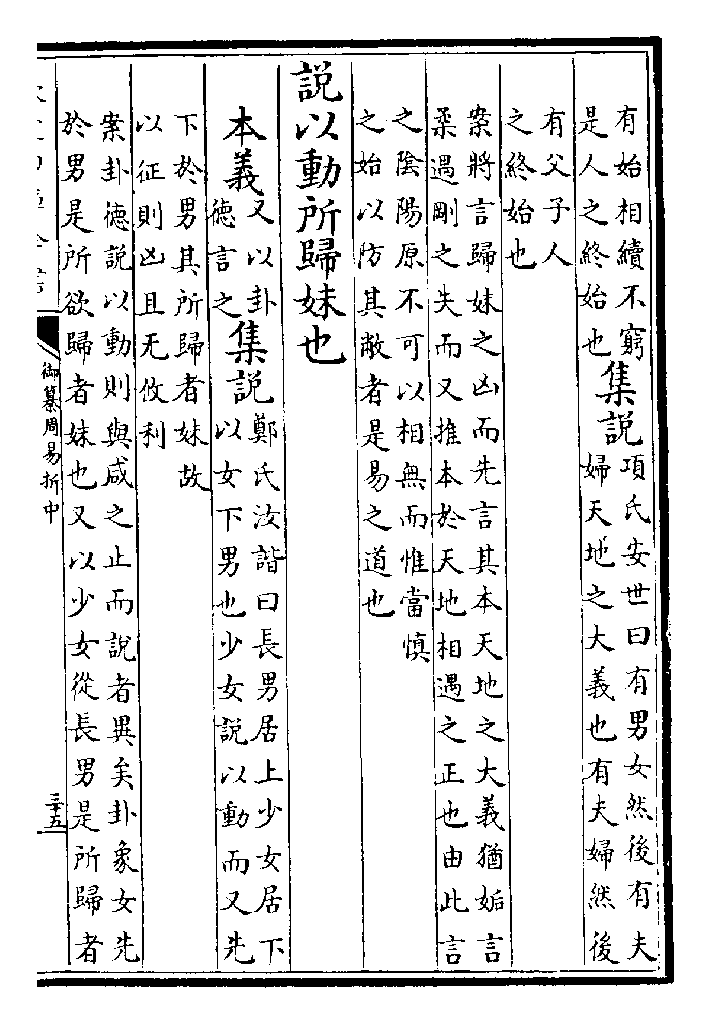 有始相續不窮
是人之終始也
集說
項氏安世曰有男女然後有夫
婦天地之大義也有夫婦然後
有父子人
之終始也
案將言歸妹之凶而先言其本天地之大義猶姤言
柔遇剛之失而又推本於天地相遇之正也由此言
之陰陽原不可以相無而惟當慎
之始以防其敝者是易之道也
說以動所歸妹也
本義
又以卦
德言之
集說
鄭氏汝諧曰長男居上少女居下
以女下男也少女說以動而又先
下於男其所歸者妹故
以征則凶且无攸利
案卦德說以動則與咸之止而說者異矣卦象女先
於男是所欲歸者妹也又以少女從長男是所歸者
御纂周易折中
三十五